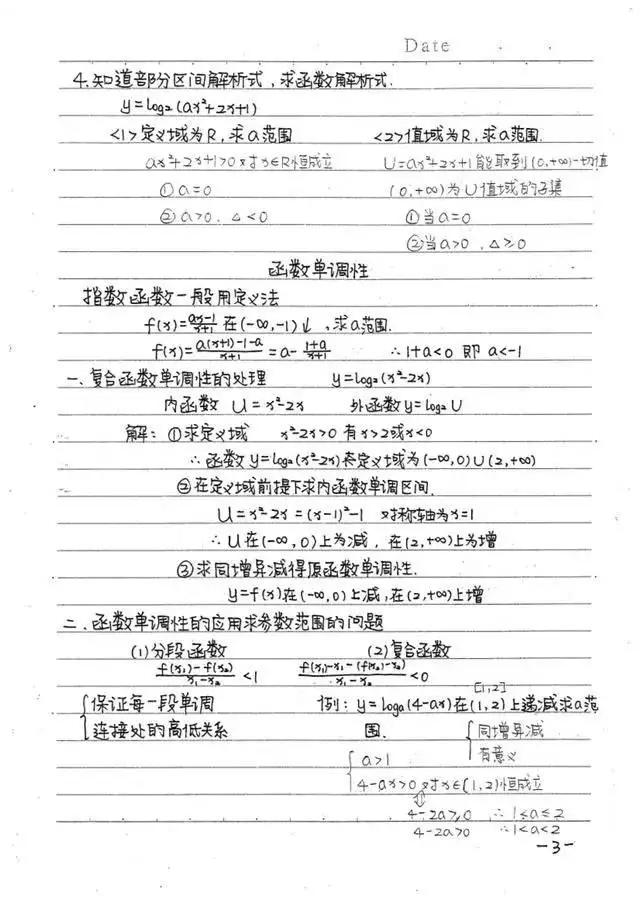 Date
4.知道部分区间解析式,求函数解析式.
y=log₂(ax²+2x+1)
<1>定义域为R,求a范围 <2>值域为R,求a范围.
ax²+2x+1>0对x∈R恒成立 U=ax²+2x+1能取到(0,+∞)一切值
①a=0 (0,+∞)为U值域的子集
②a>0.△<0 ①当a=0
②当a>0,△≥0
函数单调性
指数函数一般用定义法
f(x)=(ax-1)/(x+1)在(-∞,-1)↓,求a范围.
f(x)=(a(x+1)-1-a)/(x+1)=a-(1+a)/(x+1) ∴1+a<0 即a<-1
一.复合函数单调性的处理 y=log₂(x²-2x)
内函数 U=x²-2x 外函数y=log₂U
解:①求定义域 x²-2x>0 有x>2或x<0
∴函数y=log₂(x²-2x)定义域为(-∞,0)∪(2,+∞)
②在定义域前提下求内函数单调区间.
U=x²-2x=(x-1)²-1 对称轴为x=1
∴U在(-∞,0)上为减,在(2,+∞)上为增
③求同增异减得原函数单调性.
y=f(x)在(-∞,0)上减,在(2,+∞)上增
二.函数单调性的应用求参数范围的问题
(1)分段函数 (2)复合函数
(f(x₁)-f(x₂))/(x₁-x₂)<1 (f(x₁)-x₁-(f(x₂)-x₂))/(x₁-x₂)<0
[1,2]
{保证每一段单调 例:y=logₐ(4-ax)在(1,2)上递减求a范
连接处的高低关系 围. {同增异减
{a>1 有意义
4-ax>0对x∈[1,2)恒成立
⇕
4-2a≥0 ∴1<a≤2
4-2a>0 ∴1<a<2
-3-